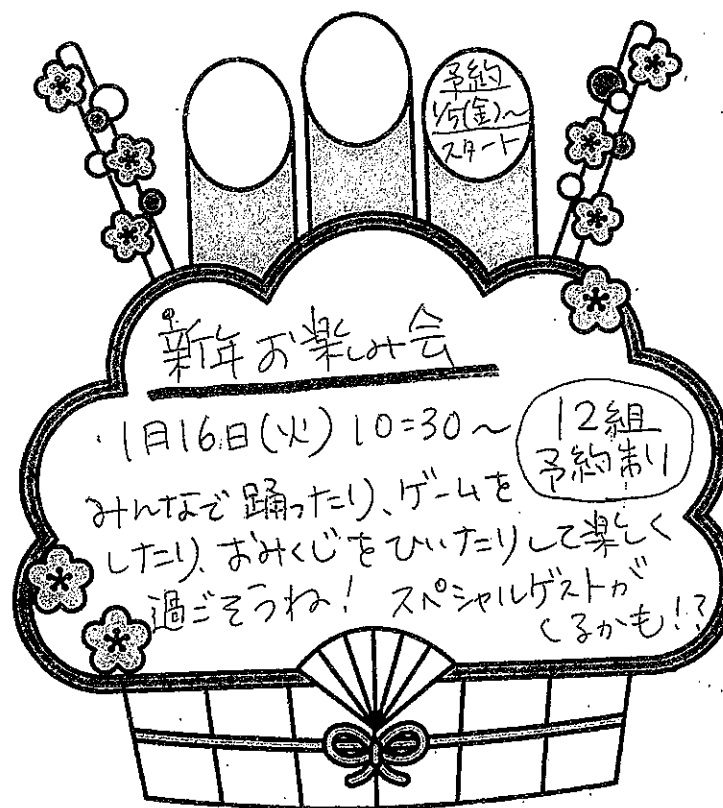 予約
1/5(金)~
スタート
新年お楽しみ会
1月16日(火) 10:30~
12組
予約制
みんなで踊ったり、ゲームを
したり、おみくじをひいたりして楽しく
過ごそうね! スペシャルゲストが
くるかも!?